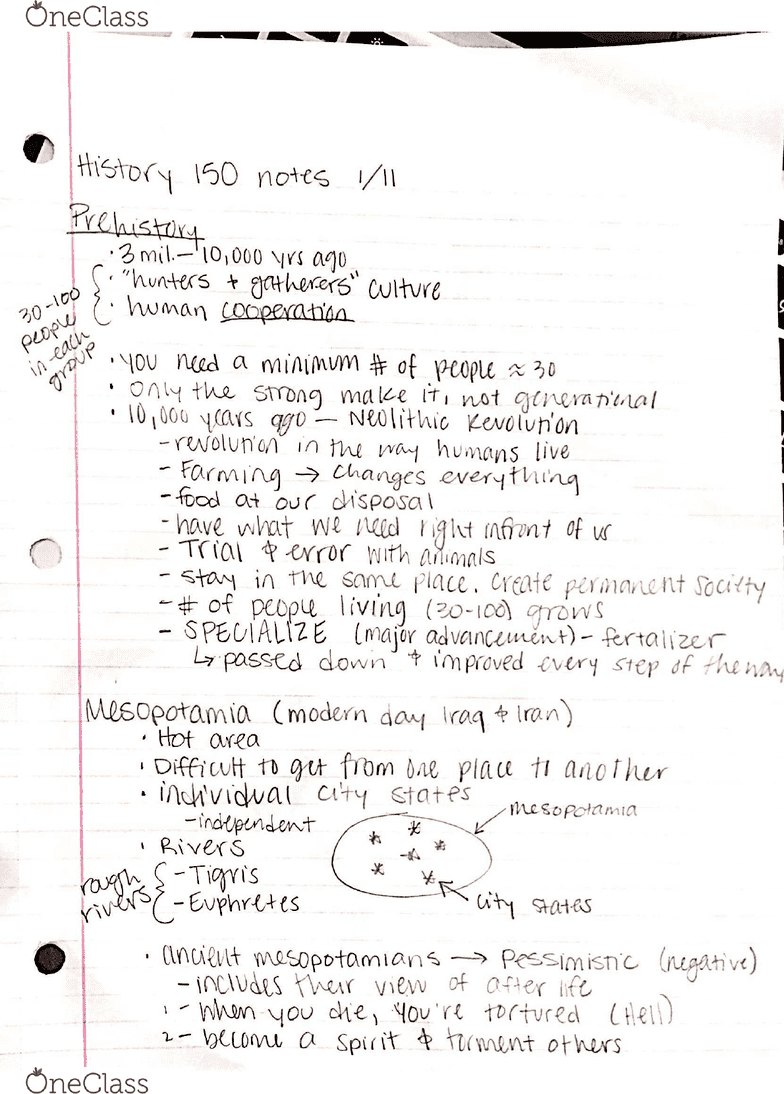 OneClass
History 150 notes 1/11
Prehistory
· 3 mil. – 10,000 yrs ago
· "hunters + gatherers" culture
· human cooperation
30-100
people
in each
group
· you need a minimum # of people ≈ 30
· only the strong make it, not generational
· 10,000 years ago – Neolithic Revolution
- revolution in the way humans live
- Farming → changes everything
- food at our disposal
- have what we need right infront of us
- Trial & error with animals
- stay in the same place. create permanent society
- # of people living (30-100) grows
- SPECIALIZE (major advancement) - fertalizer
↳ passed down + improved every step of the way
Mesopotamia (modern day Iraq & Iran)
· Hot area
· Difficult to get from one place to another
· individual city states
- independent
mesopotamia
· Rivers
rough
rivers
- Tigris
- Euphretes
city states
· ancient mesopotamians → Pessimistic (negative)
- includes their view of after life
1 - When you die, you're tortured (Hell)
2 - become a spirit & torment others
OneClass